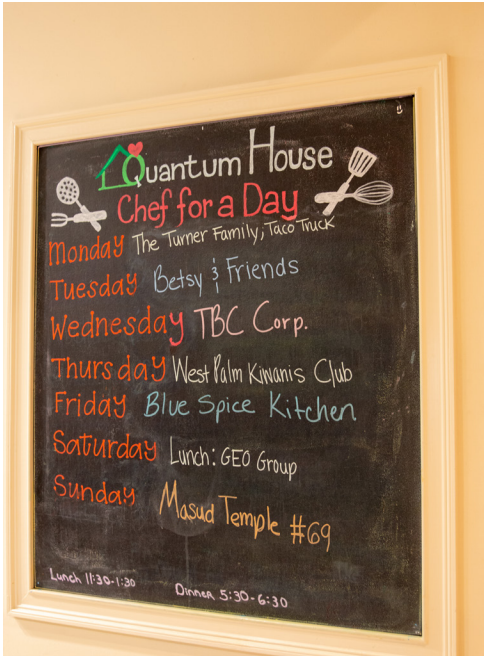 Quantum House
Chef for a Day
Monday The Turner Family, Taco Truck
Tuesday Betsy & Friends
Wednesday TBC Corp.
Thursday West Palm Kiwanis Club
Friday Blue Spice Kitchen
Saturday Lunch: GEO Group
Sunday Masud Temple #69
Lunch 11:30-1:30 Dinner 5:30-6:30